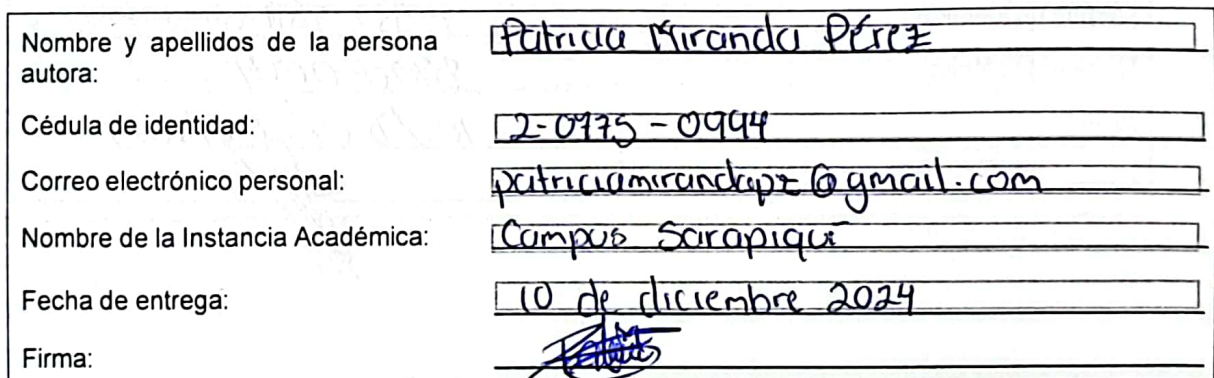 Nombre y apellidos de la persona Patricia Miranda Pérez
autora:
Cédula de identidad: 2-0775-0994
Correo electrónico personal: patriciamirandapz@gmail.com
Nombre de la Instancia Académica: Campus Sarapiquí
Fecha de entrega: 10 de diciembre 2024
Firma: